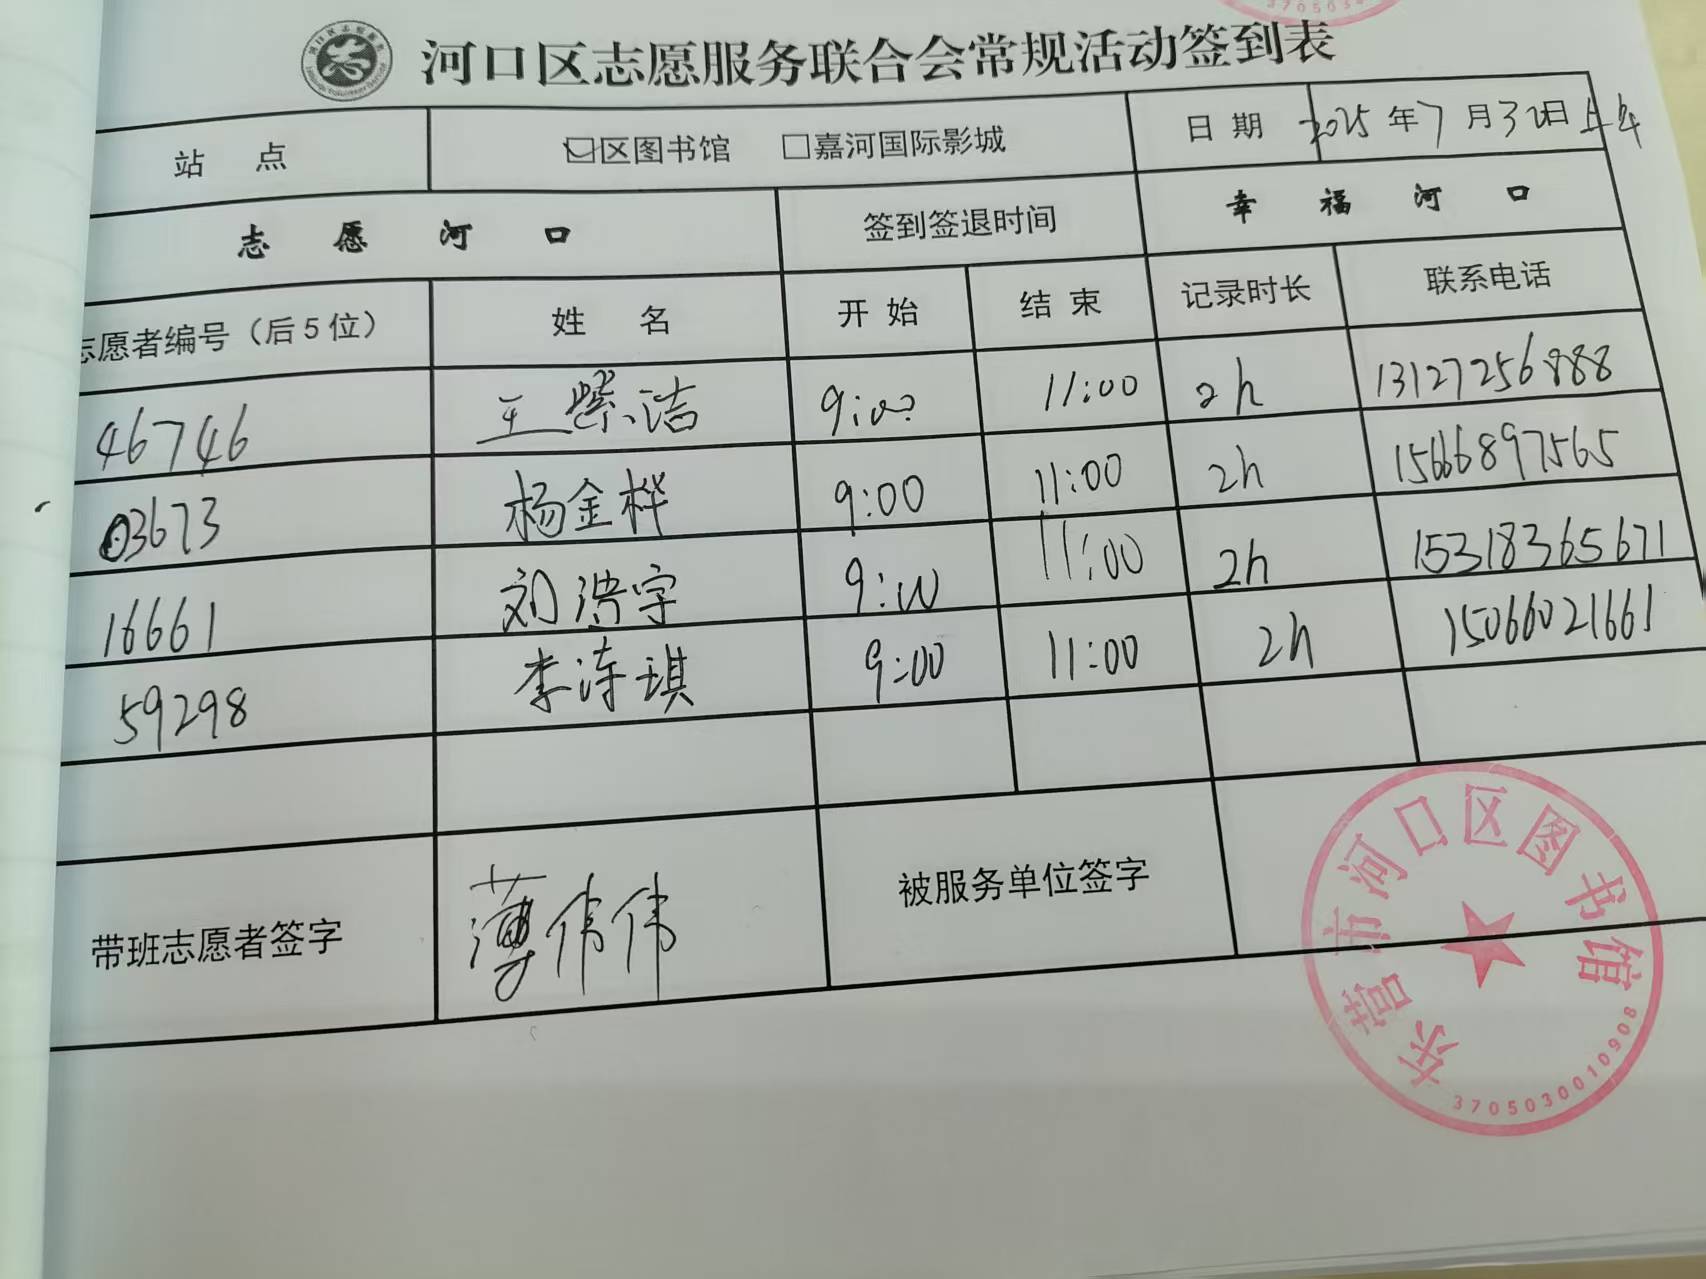 河口区志愿服务联合会常规活动签到表
站 点 区图书馆 嘉河国际影城 日 期 2025年7月30日上午
志 愿 河 口 签到签退时间 幸 福 河 口
志愿者编号（后5位） 姓 名 开 始 结 束 记录时长 联系电话
46746 王紫洁 9:00 11:00 2h 13127256888
03673 杨金桦 9:00 11:00 2h 15666897565
16661 刘浩宇 9:00 11:00 2h 15318365671
59298 李涛琪 9:00 11:00 2h 15066021661
带班志愿者签字 薄伟伟 被服务单位签字
东营市河口区图书馆
3705030010908